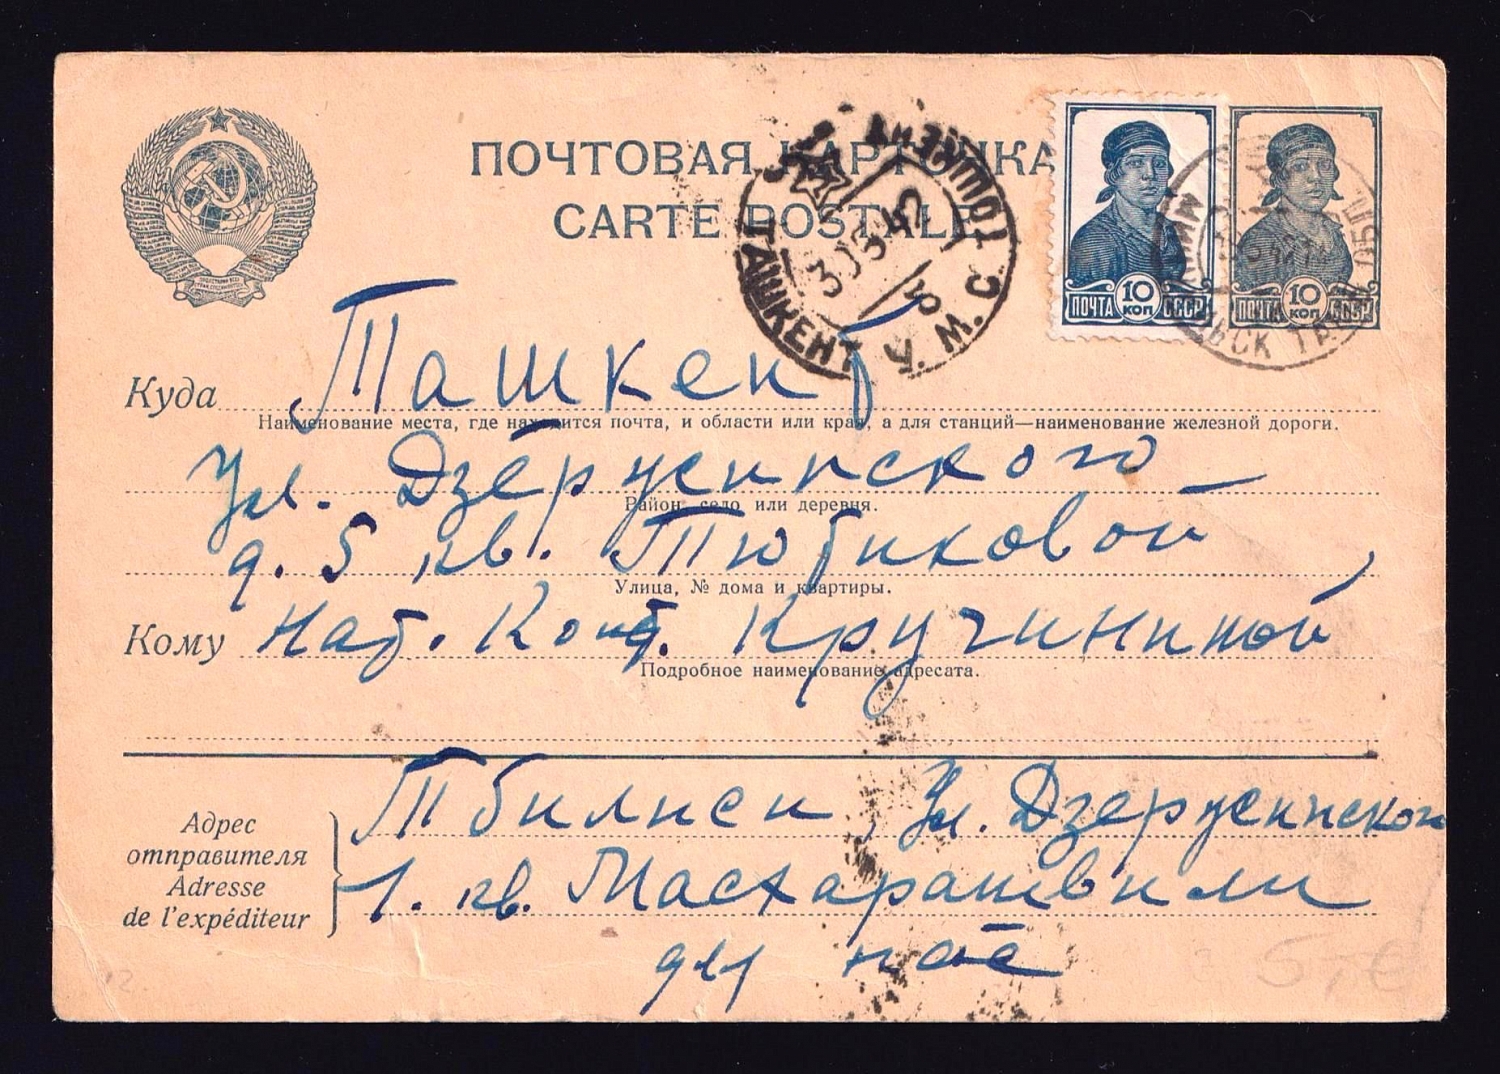 ПОЧТОВАЯ КАРТОЧКА
CARTE POSTALE
ТАШКЕНТ У. М. С.
ТОШКЕНТ
ПОЧТА 10 КОП СССР
ПОЧТА 10 КОП СССР
Куда Ташкент
Наименование места, где находится почта, и области или края, а для станций—наименование железной дороги.
Ул. Дзержинского
Район, село или деревня.
д. 5 кв. Тюбиковой
Улица, № дома и квартиры.
Кому Кручининой
Подробное наименование адресата.
Адрес
отправителя
Adresse
de l'expéditeur
Тбилиси, Ул. Дзержинского
1. кв. Масхарашвили
для